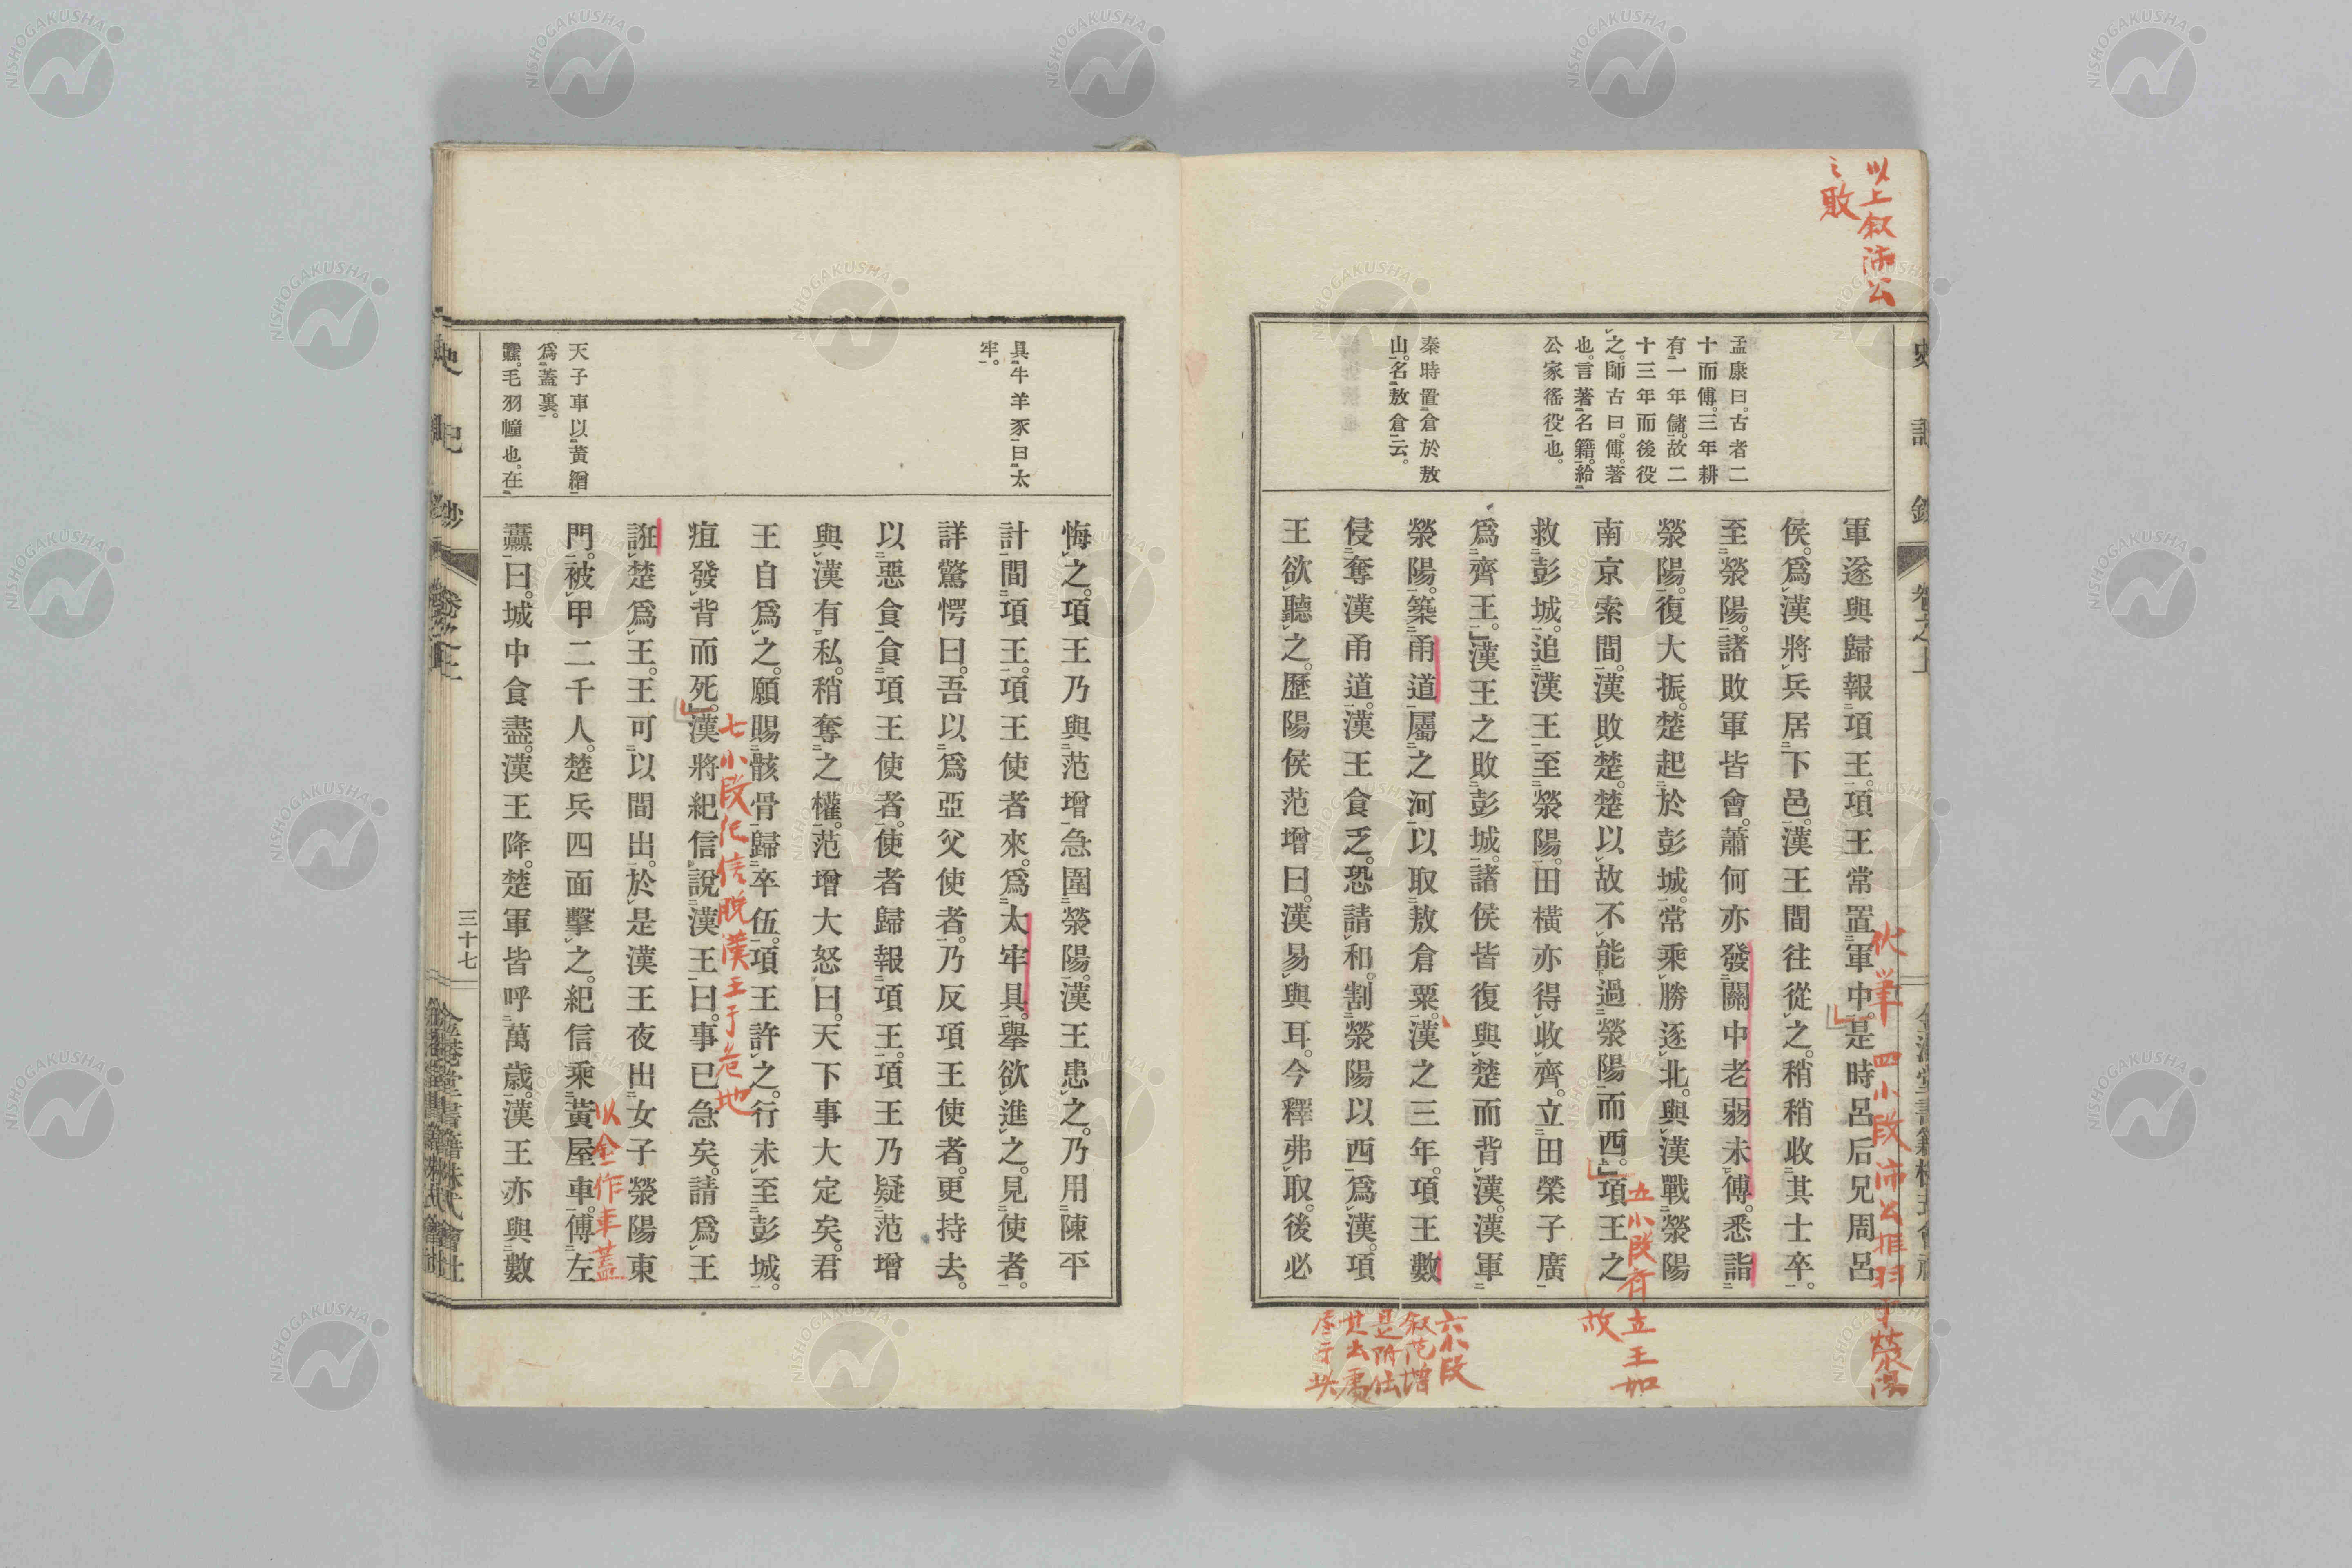 以上叙沛公
之敗
孟康曰。古者二
十而傅。三年耕
有一年儲。故二
十三年而後役
之。師古曰。傅。著
也。言著名籍。給
公家徭役也。
秦時置倉於敖
山。名敖倉云。
軍遂與歸報項王。項王常置軍中。是時呂后兄周呂
侯。爲漢將兵居下邑。漢王間往從之。稍稍收其士卒。
至滎陽。諸敗軍皆會。蕭何亦發關中老弱未傅。悉詣
滎陽。復大振。楚起於彭城。常乘勝逐北。與漢戰滎陽
南京索間。漢敗楚。楚以故不能過滎陽而西。項王之
救彭城。追漢王至滎陽。田橫亦得收齊。立田榮子廣
爲齊王。漢王之敗彭城。諸侯皆復與楚而背漢。漢軍
滎陽。築甬道屬之河。以取敖倉粟。漢之三年。項王數
侵奪漢甬道。漢王食乏。恐請和。割滎陽以西爲漢。項
王欲聽之。歷陽侯范增曰。漢易與耳。今釋弗取。後必
四小段沛公推羽于滎陽
五小段齊立王如
故
六小段
叙范增
具牛羊豕曰太
牢。
天子車以黃繒
爲蓋裏。
纛。毛羽幢也。在
悔之。項王乃與范增急圍滎陽。漢王患之。乃用陳平
計間項王。項王使者來。爲太牢具。擧欲進之。見使者。
詳驚愕曰。吾以爲亞父使者。乃反項王使者。更持去。
以惡食食項王使者。使者歸報項王。項王乃疑范增
與漢有私。稍奪之權。范增大怒曰。天下事大定矣。君
王自爲之。願賜骸骨歸卒伍。項王許之。行未至彭城。
疽發背而死。漢將紀信說漢王曰。事已急矣。請爲王
誑楚爲王。王可以間出。於是漢王夜出女子滎陽東
門。被甲二千人。楚兵四面擊之。紀信乘黃屋車。傅左
纛曰。城中食盡。漢王降。楚軍皆呼萬歲。漢王亦與數
七小段紀信脫漢王于危地
以金作車蓋
三十七
NISHOGAKUSHA